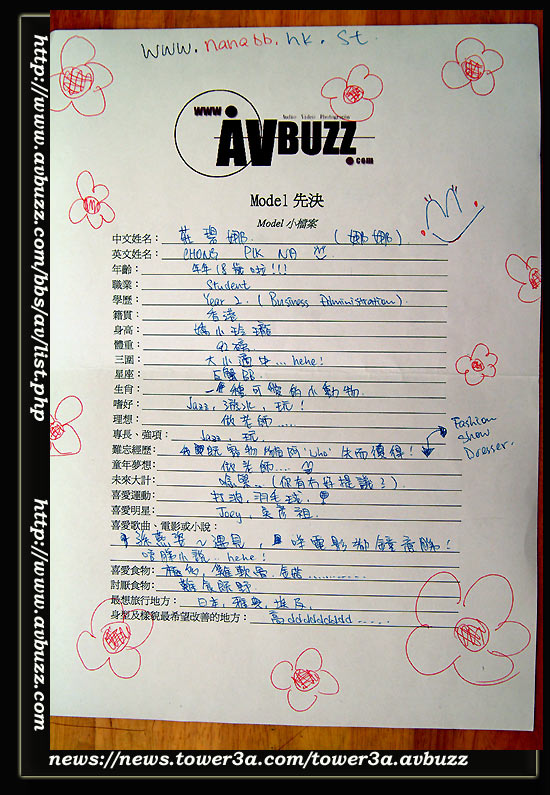 www.nanabb.hk.st
www.
Audio Video Photography
AVBUZZ
.com
Model 先決
Model 小檔案
中文姓名： 莊碧娜 (娜娜)
英文姓名： CHONG PIK NA
年齡： 年年18歲啦!!!
職業： Student
學歷： Year 2. (Business Administration).
籍貫： 香港
身高： 嬌小玲瓏
體重：
三圍： 大小適中...hehe!
星座： 巨蟹
生肖： 一種可愛的小動物
嗜好： Jazz, 玩!
理想： 做老師.....
專長、強項： Jazz 玩
難忘經歷： 失而復得!
Fashion
show
Dresser.
童年夢想： 做老師....
未來大計： (你有冇好提議?)
喜愛運動： 打波, 羽毛球,
喜愛明星： Joey, 吳彥祖.
喜愛歌曲、電影或小說：
孫燕姿～遇見, 咩電影都鍾意睇!
唔睇小說...hehe!
喜愛食物： 雞軟骨,
討厭食物：
最想旅行地方： 日本, 埃及.
身型及樣貌最希望改善的地方： 高ddddddddd.....
http://www.avbuzz.com/bbs/av/list.php
http://www.avbuzz.com
news://news.tower3a.com/tower3a.avbuzz